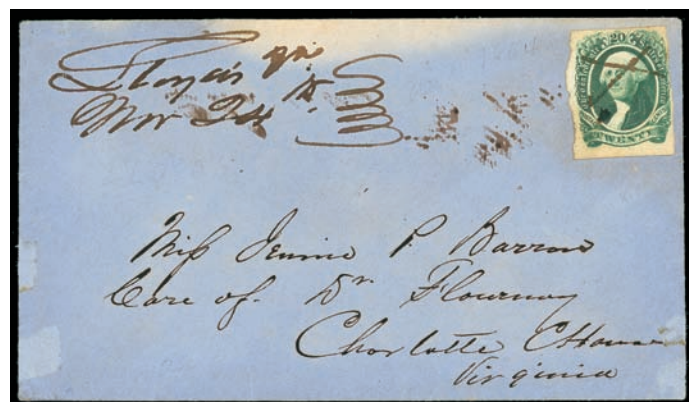 Nov 24
20
TWENTY
Miss Jennie P. Barron
Care of Dr Flournoy
Charlotte CHouse
Virginia